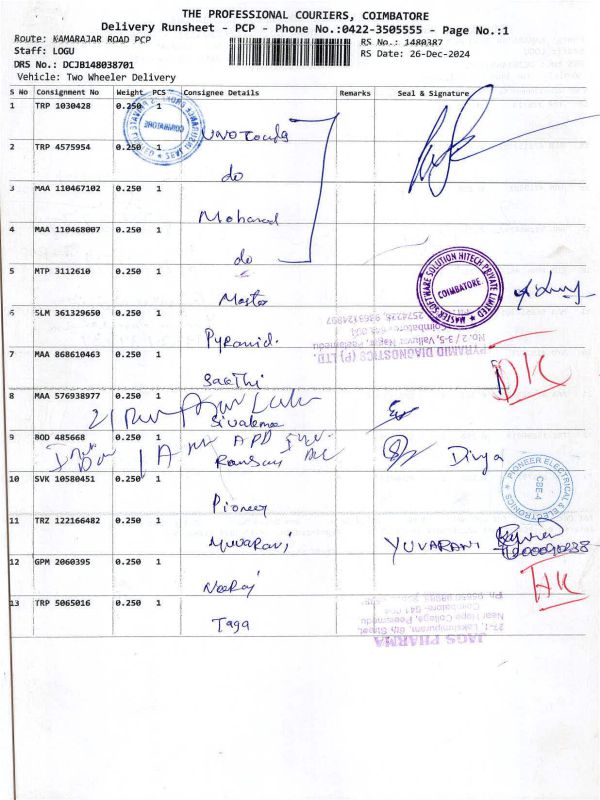 THE PROFESSIONAL COURIERS, COIMBATORE
Delivery Runsheet - PCP - Phone No.:0422-3505555 - Page No.:1
Route: KAMARAJAR ROAD PCP
RS No.: 1480387
Staff: LOGU
RS Date: 26-Dec-2024
DRS No.: DCJB148038701
Vehicle: Two Wheeler Delivery
S No Consignment No Weight PCS Consignee Details Remarks Seal & Signature
1 TRP 1030428 0.250
COIMBATORE
2 TRP 4575954 0.250
do
3 MAA 110467102 0.250 1
Mohanad
4 MAA 110468007 0.250 1
do
5 MTP 3112610 0.250 1
Master
MASTER SOFTWARE SOLUTION HITECH PRIVATE LIMITED
COIMBATORE
6 SLM 361329650 0.250 1
Pyramid.
PYRAMID DIAGNOSTICS (P) LTD.
No. 2 / 3-5, Valluvar Nagar, Peelamedu
2574238, 9363124997
7 MAA 868610463 0.250 1
Sakthi
DK
8 MAA 576938977 0.250 1
Sivakma
9 BOD 485668 0.250 1
Ransar
Divya
10 SVK 10580451 0.250 1
Pioneer
PIONEER ELECTRICAL & ELECTRONICS
CBE-4
11 TRZ 122166482 0.250 1
Yuvarani
YUVARANI
12 GPM 2060395 0.250 1
Neeraj
HK
13 TRP 5065016 0.250 1
Taga
JAGS PHARMA
27-1, Lakshmipuram, 6th Street,
Near Hope College, Peelamedu
Coimbatore- 641 004